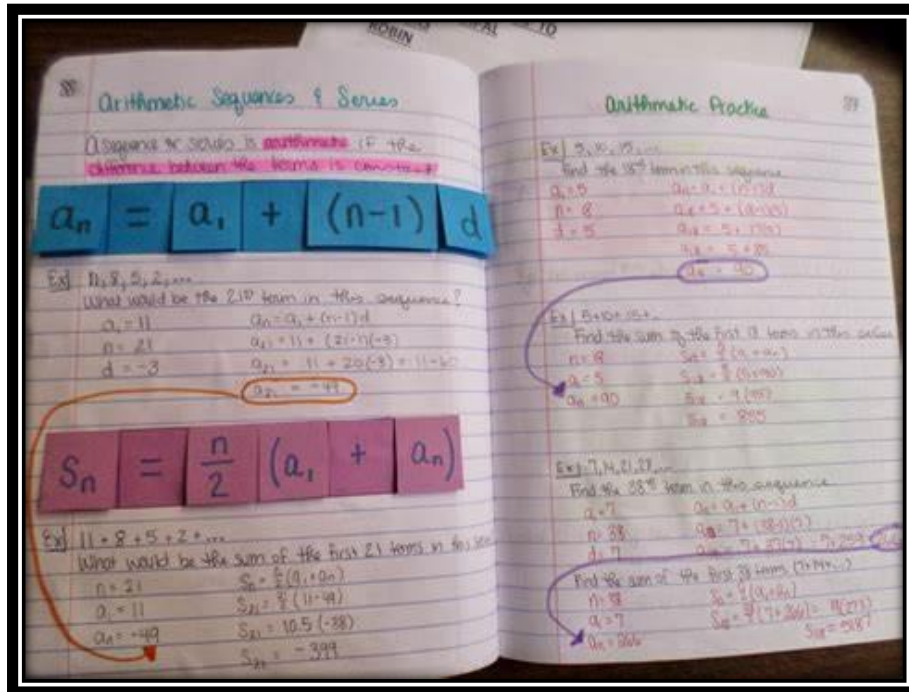 TO
ROBIN
Arithmetic Sequences & Series
A sequence or series is arithmetic if the
difference between the terms is constant.
an = a1 + (n-1) d
Ex] 11, 8, 5, 2, ...
What would be the 21st term in this sequence?
a1 = 11 an = a1 + (n-1)d
n = 21 a21 = 11 + (21-1)(-3)
d = -3 a21 = 11 + 20(-3) = 11-60
a21 = -49
Sn = n/2 (a1 + an)
Ex] 11 + 8 + 5 + 2 + ...
What would be the sum of the first 21 terms in this
n = 21 Sn = n/2 (a1 + an)
a1 = 11 S21 = 21/2 (11-49)
an = -49 S21 = 10.5 (-38)
S21 = -399
Arithmetic Practice
Ex] 5, 10, 15, ...
Find the 18th term in this sequence
a1 = 5 an = a1 + (n-1)d
d = 5
a18 = 5 + 17(5)
a18 = 5 + 85
a18 = 90
Ex] 5+10+15+...
Find the sum of the first 18 terms in this series
Sn = n/2 (a1 + an)
a1 = 5
an = 90
= 855
Ex] 7, 14, 21, 28, ...
Find the 38th term in this sequence
a1 = 7 an = a1 + (n-1)d
n = 38 a38 = 7 + (38-1)(7)
d = 7
Find the sum of the first 38 terms (7+14+...)
n = 38 Sn = n/2 (a1 + an)
a1 = 7
an = 266 S38 = 5187